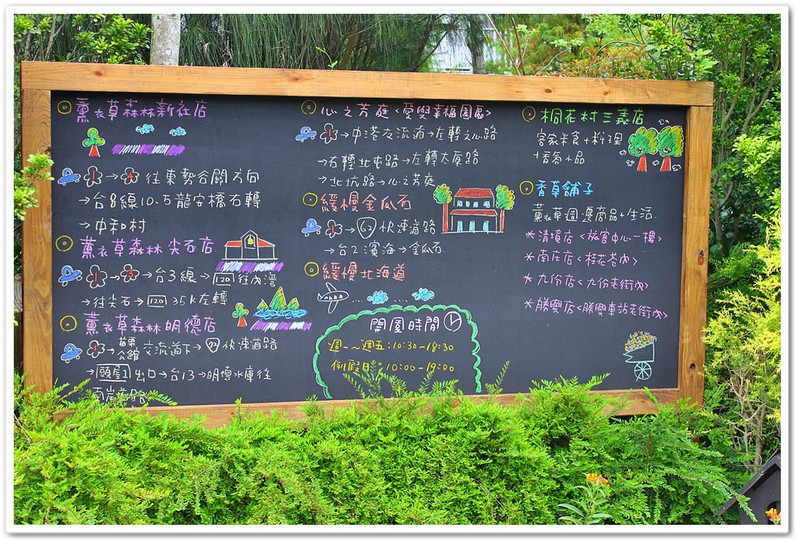 薰衣草森林新社店
往東勢谷關方向
→台8線10.5龍安橋右轉
→中和村
薰衣草森林 尖石店
→台3線→120往內灣
→往尖石→120 35K左轉
薰衣草森林明德店
交流道下→快速道路
→頭屋出口→台13→明德水庫往
心之芳庭<愛與幸福園區>
→中港交流道→左轉文心路
→右轉北屯路→左轉太原路
→北坑路→心之芳庭
緩慢金瓜石
→62快速道路
→台2濱海→金瓜石
緩慢北海道
開園時間
週一~週五:10:30-18:30
例假日:10:00-19:00
桐花村三義店
客家米食+料理
香草鋪子
薰衣草週邊商品+生活
*清境店<旅客中心一樓>
*南庄店<桂花巷內>
*九份店<九份老街內>
*勝興店<勝興車站老街內>